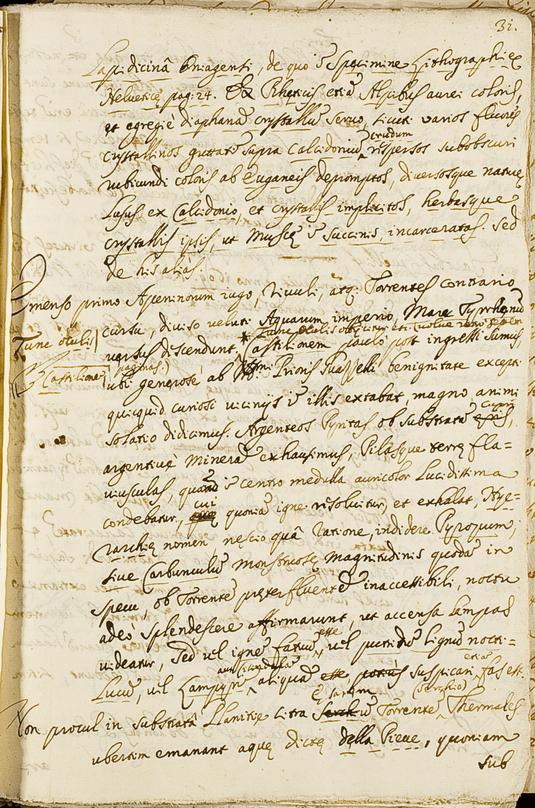 31.
Lapidicinâ Briagenti, de quo i Specimine Lithographię
Helveticę pag: 24. Ex Rheticis etiã Alpibus aurei coloris,
et egregiè diaphanã crystallũ servo, sicuti varios fluores
crudum
crystallinos guttatĩ supra Calcidoniũ respersos subobscuri
rubicundi coloris ab Euganeis depromptos, diversosque naturę
lusus ex Calcidonio et crystallis implicitos, herbasque
crystallis ipsis, ut Muscę i succinis, incarceratas. Sed
de his aliàs.
Emenso primo Apenninorum iugo, rivuli, atq; Torrentes contrario
cursu, diviso veluti Aquarum imperio, Mare Tyrrhenũ
versus descendunt, Castilionem paulo post ingressi sumus
Tunc oculis
Castilionem
ubi generosè ab Principis benignitate excepti
quicquid curiosi vicinis i illis extabat, magno animi
solatio didicimus. Argenteos Pyritas ob substratã
argentiuę Minerã exhausimus, Pilasque terrę fla=
viusculas, i centro medulla auricolor lucidissima
condebatur, cui quoniã igne resolvitur, et exhalat, Hye=
rarchię nomen nescio quâ ratione, indidere Pyropum,
sive Carbunculũ monstrosę magnitudinis quodã in
specu, ob Torrentẽ pręterfluentẽ inaccessibili, noctu
adeò splendescere affirmarunt, ut accensa lampas
esse
videatur, sed vel ignẽ fatuũ, vel putridũ lignũ nocti=
lucũ, vel Lampyrĩ aliquã suspicari fas est.
Non procul in substratâ Planitie citra Torrentẽ Thermales
ubertim emanant aquę dictę della Pieve, quoniam
sub